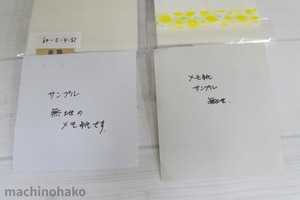 サンプル
無地の
メモ紙です
メモ紙
サンプル
無地
machinohako